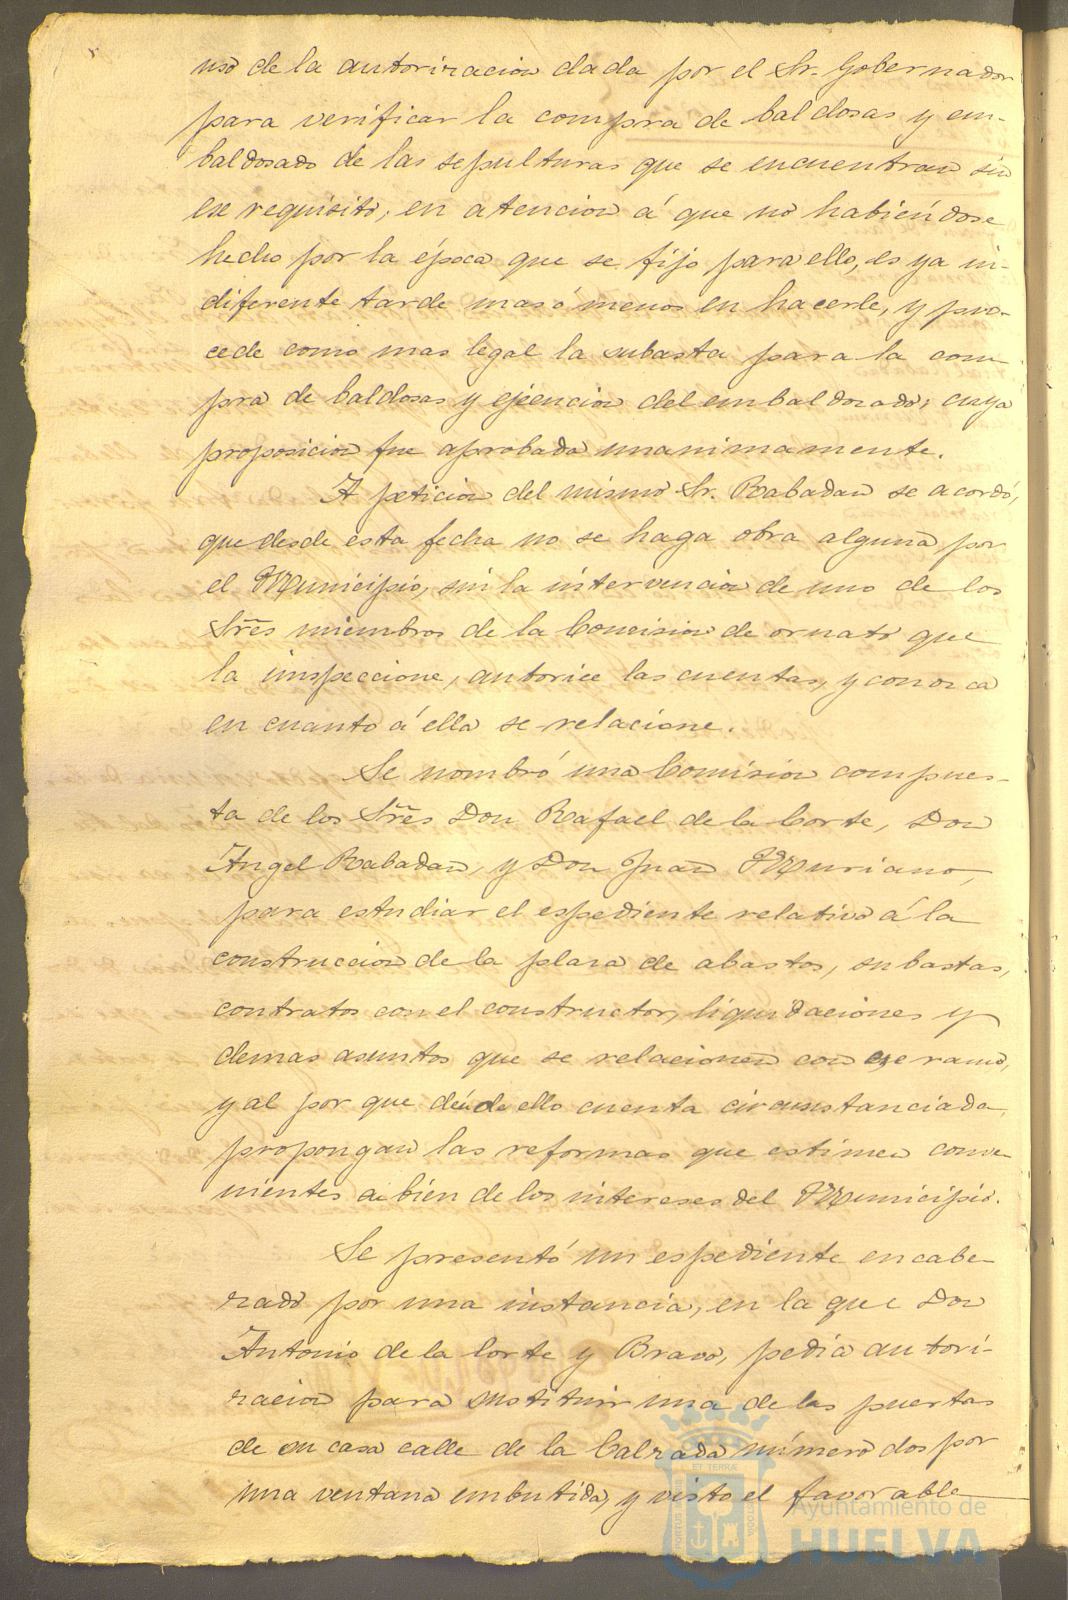 uso de la autorizacion dada por el Sr. Gobernador
para verificar la compra de baldosas y em-
baldosado de las sepulturas que se encuentran sin
ese requisito, en atencion á que no habiéndose
hecho por la época que se fijo para ello, es ya in-
diferente tarde mas ó menos en hacerle, y pro-
cede como mas legal la subasta para la com
pra de baldosas y ejecucion del embaldosado; cuya
proposicion fue aprobada unanimamente.
A peticion del mismo Sr. Rabadan se acordó,
que desde esta fecha no se haga obra alguna por
el Municipio, sin la intervencion de uno de los
Sres miembros de la Comision de ornato que
la inspeccione, autorice las cuentas, y conozca
en cuanto á ella se relacione.
Se nombró una Comision compues-
ta de los Sres Don Rafael de la Corte, Don
Angel Rabadan, y Don Juan Muriano,
para estudiar el espediente relativo á la
construccion de la plaza de abastos, subastas,
contratos con el constructor, liquidaciones y
demas asuntos que se relacionen con ese ramo,
y al por que dén de ello cuenta circunstanciada,
propongan las reformas que estimen conve-
nientes al bien de los intereses del Municipio.
Se presentó un espediente encabe-
zado por una instancia, en la que Don
Antonio de la Corte y Bravo, pedia autori-
zacion para sustituir una de las puertas
de su casa calle de la Calzada número dos por
una ventana embutida, y visto el favorable
PORTUS MARIS ET TERRAE CUSTODIA
Ayuntamiento de
HUELVA